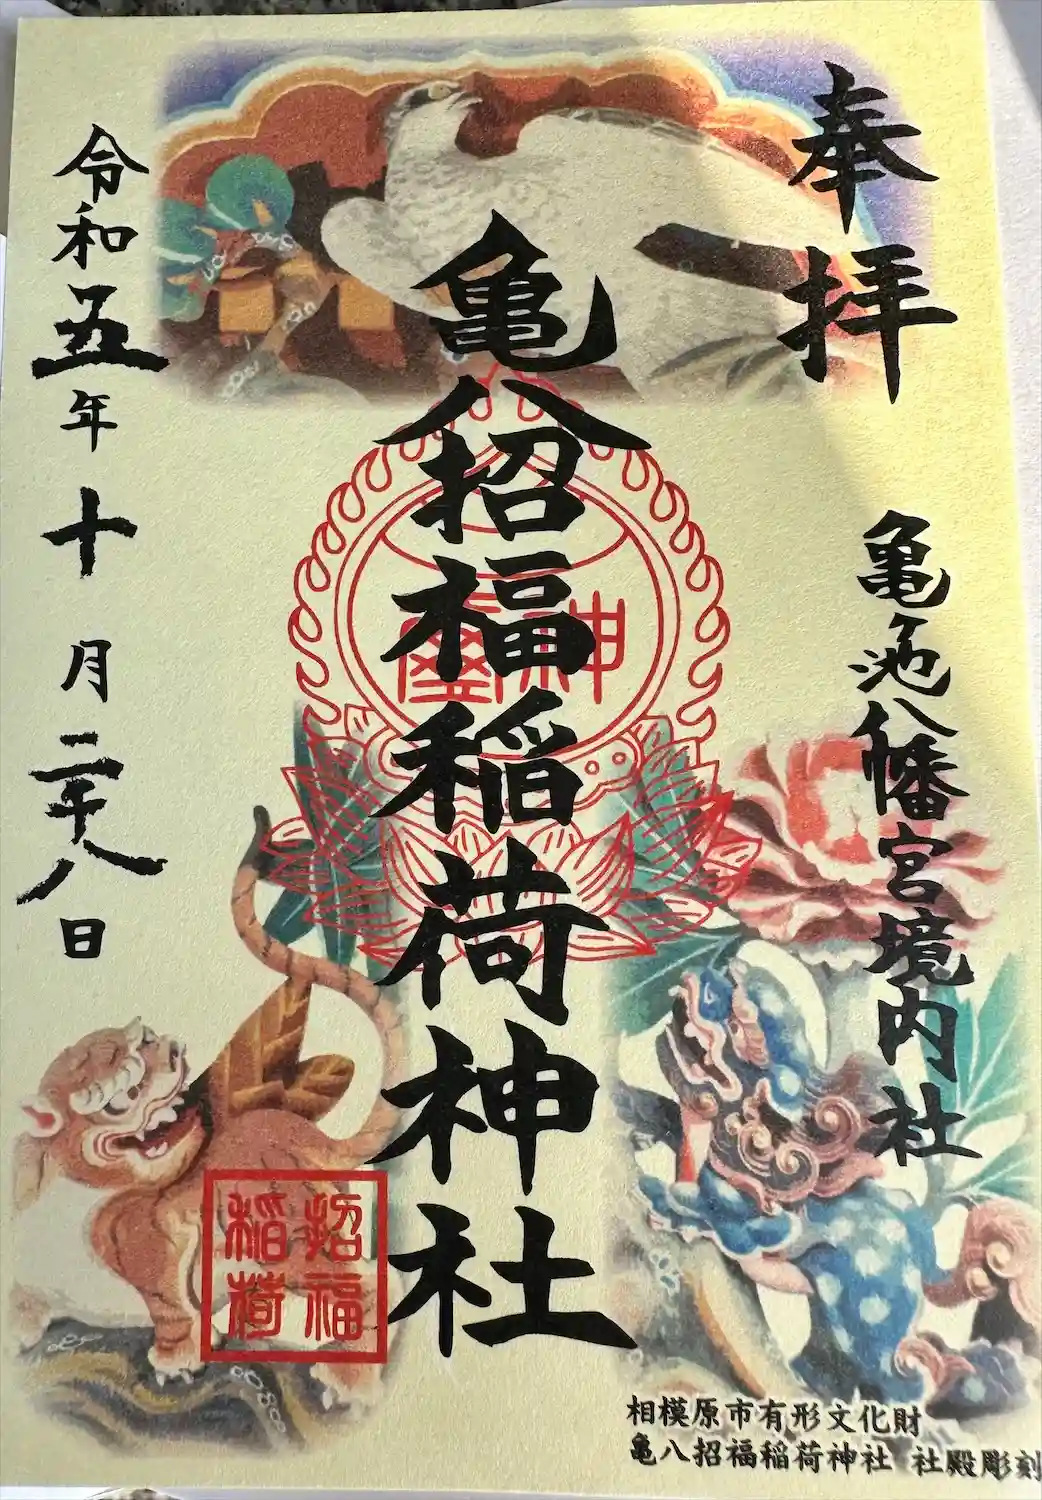 奉拝
亀ヶ池八幡宮境内社
亀八招福稲荷神社
神璽
招福
稲荷
令和五年十月二十八日
相模原市有形文化財
亀八招福稲荷神社 社殿彫刻